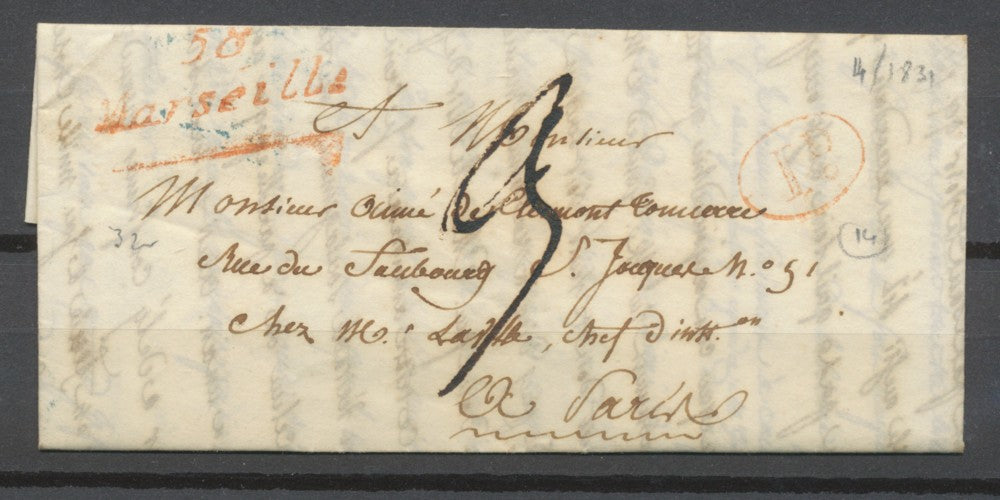 58
Marseille
4/1831
A Monsieur
1º.
3
Monsieur Aimé de Clermont Tonnerre
32
14
Rue du Faubourg S. Jacques N.º 51
chez Mr. , chef d'inst.on
A Paris